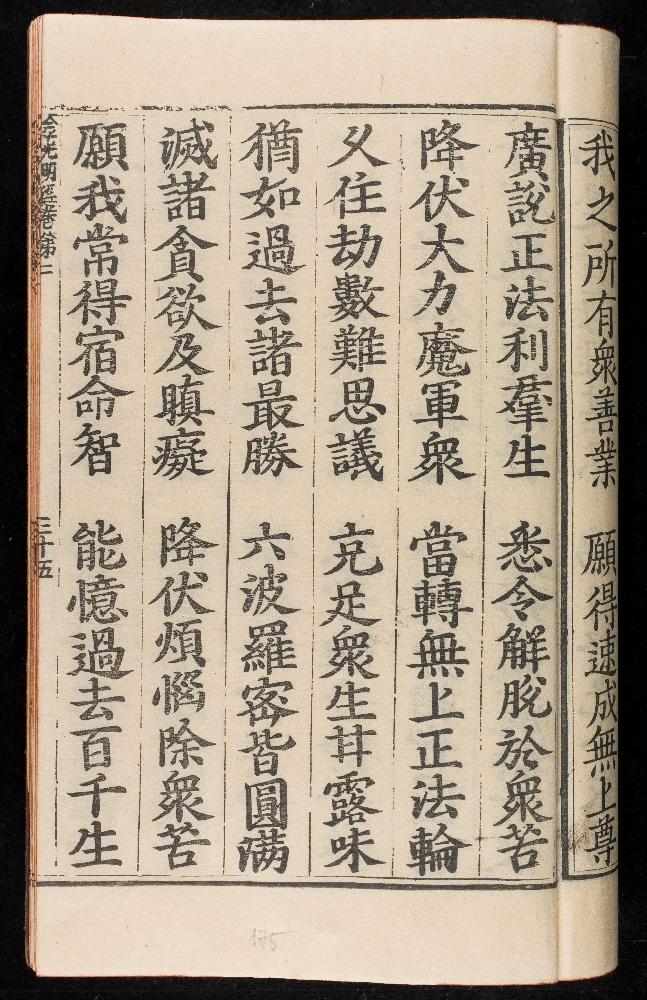 我之所有衆善業　願得速成無上尊
廣說正法利羣生　悉令解脫於衆苦
降伏大力魔軍衆　當轉無上正法輪
久住劫數難思議　充足衆生甘露味
猶如過去諸最勝　六波羅密皆圓滿
滅諸貪欲及瞋癡　降伏煩惱除衆苦
願我常得宿命智　能憶過去百千生
金光明經卷第二
三十五
175